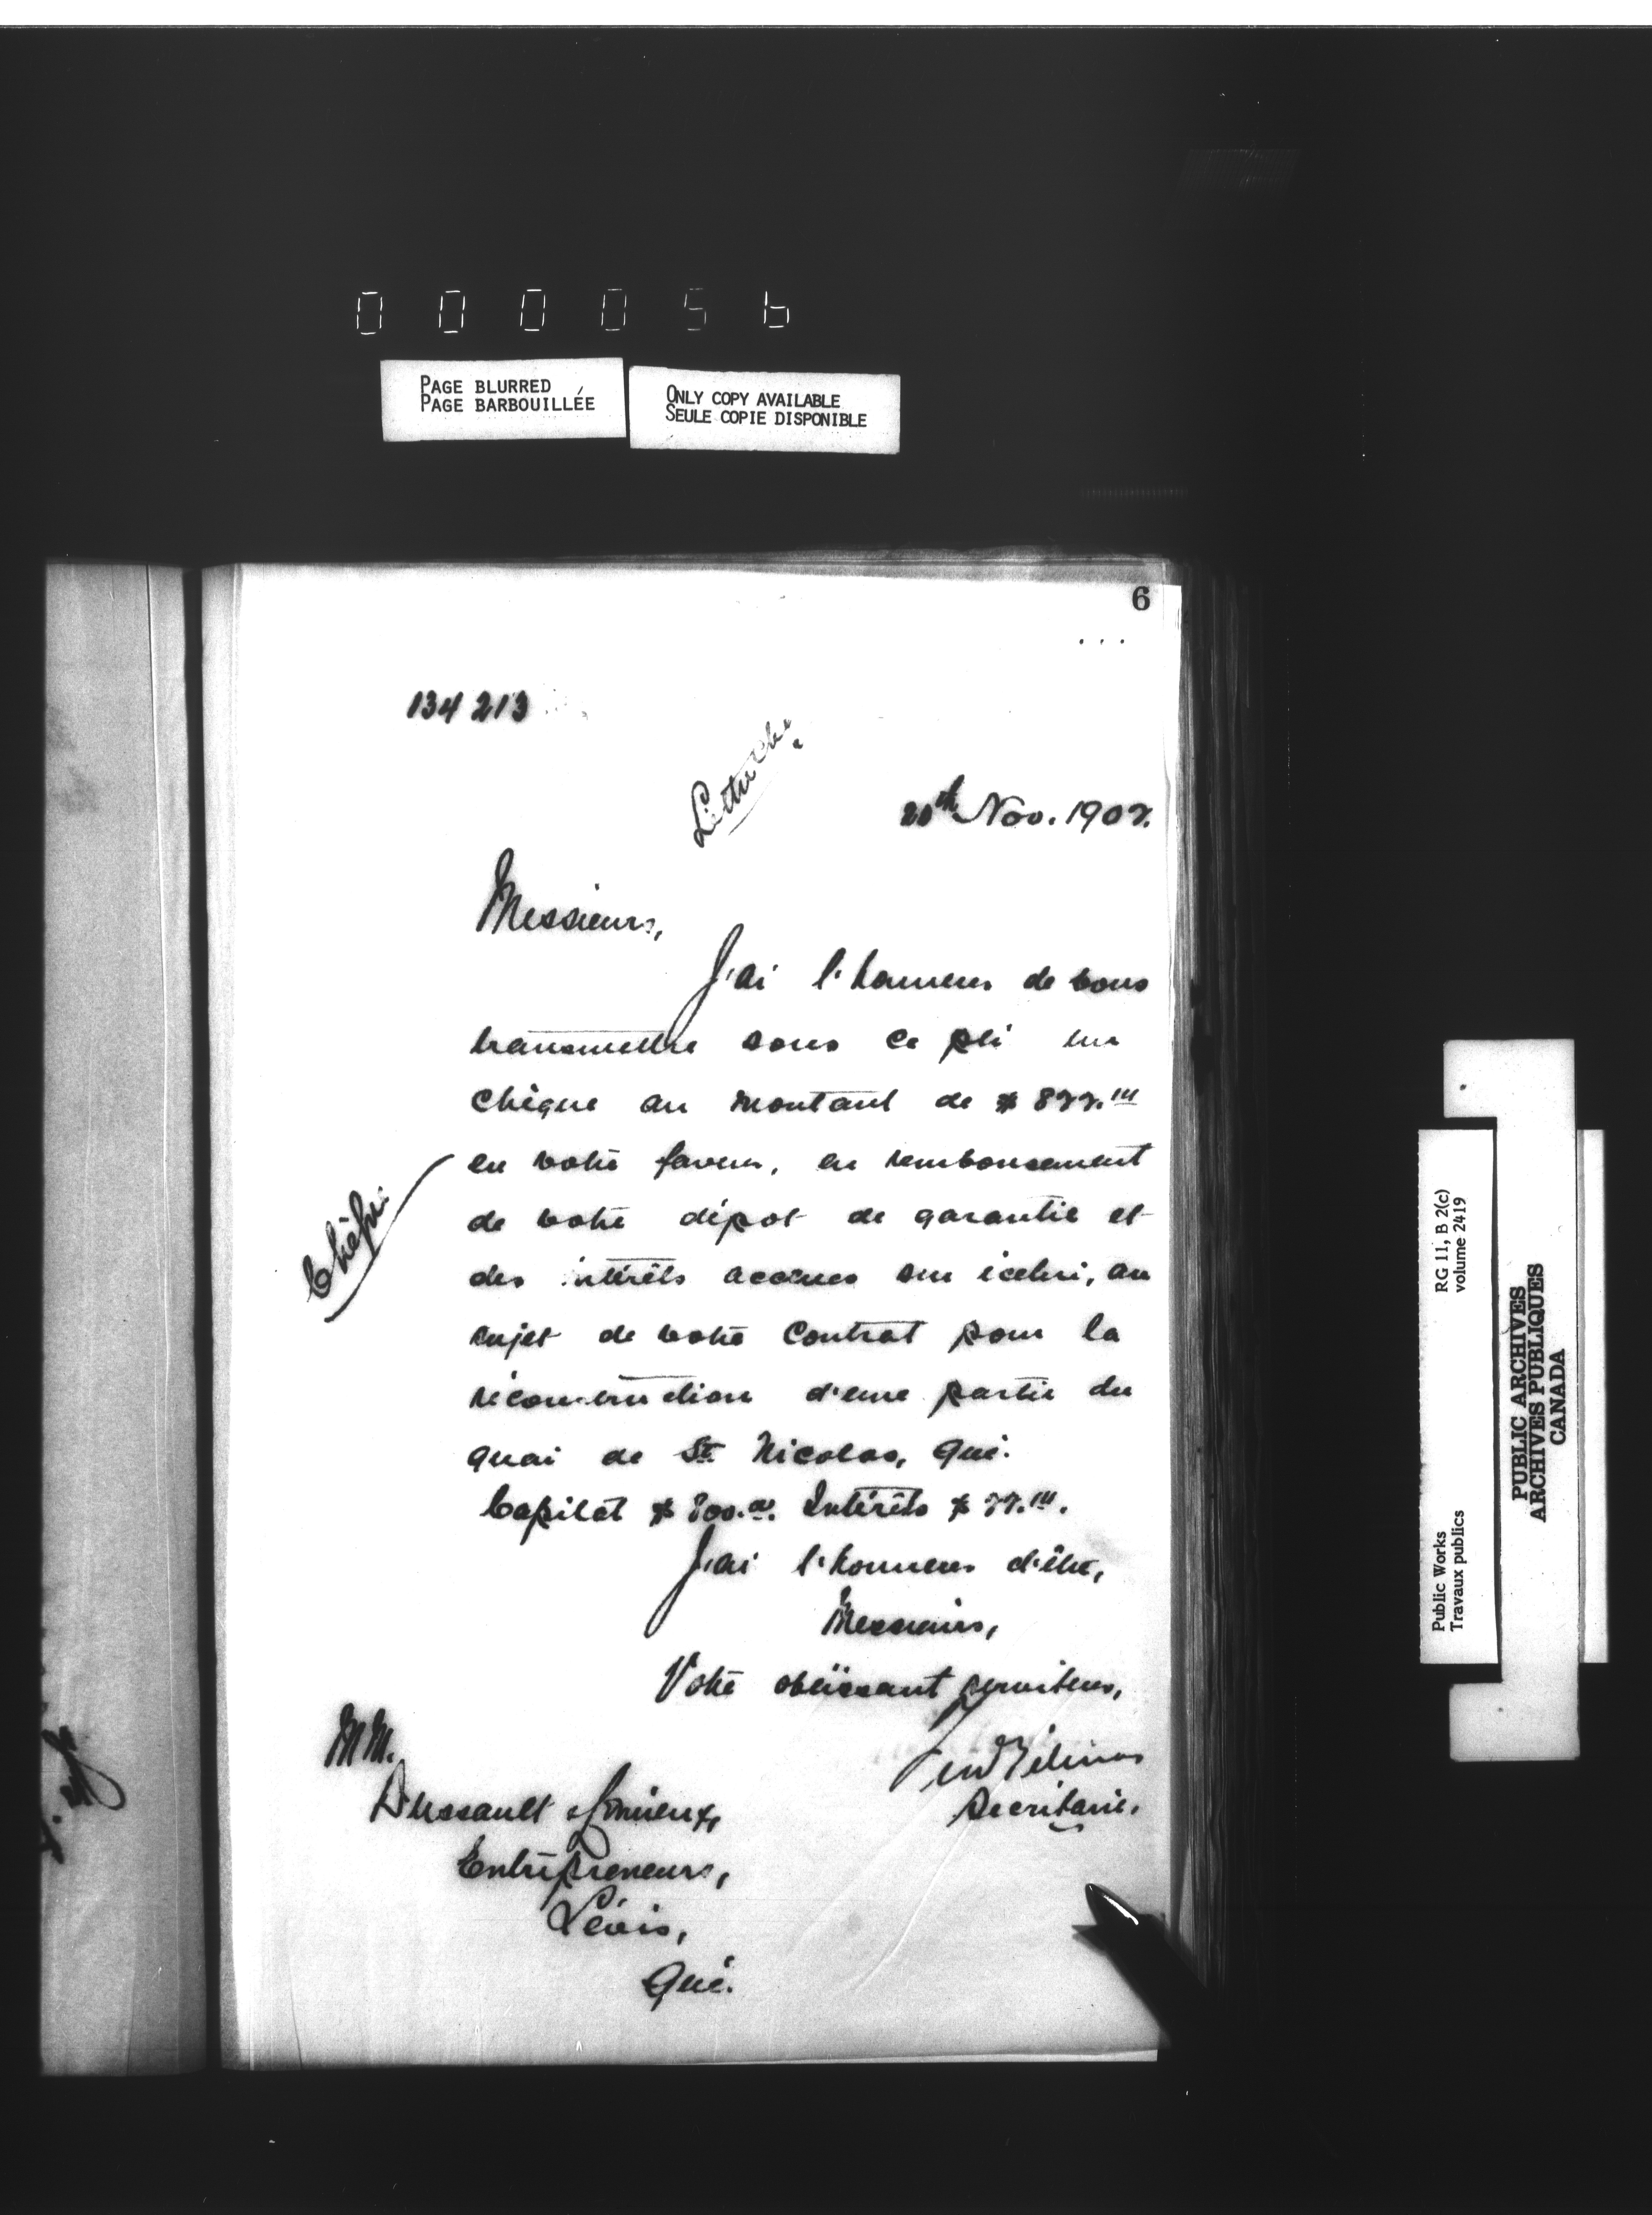 0 0 0 0 5 6
PAGE BLURRED
PAGE BARBOUILLÉE
ONLY COPY AVAILABLE
SEULE COPIE DISPONIBLE
6
134 213
20th Nov. 1907.
Messieurs,
J'ai l'honneur de vous
transmettre sous ce pli un
chèque au montant de $ 877.
en votre faveur, en remboursement
de votre dépot de garantie et
des intérêts accrues sur icelui, au
sujet de votre Contrat pour la
réconstruction d'une partie du
quai de St Nicolas, Qué.
Capital $ 800.00. Intérêts $ 77.
J'ai l'honneur d'être,
Messieurs,
Votre obéissant serviteur,
Secrétaire.
MM.
Dussault & Lemieux,
Entrepreneurs,
Lévis,
Qué.
Chèque
RG 11, B 2(c)
volume 2419
Public Works
Travaux publics
PUBLIC ARCHIVES
ARCHIVES PUBLIQUES
CANADA